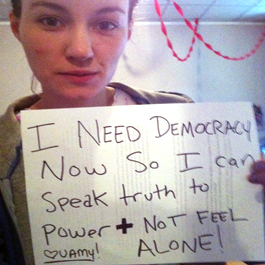 I NEED DEMOCRACY
NOW SO I can
Speak truth to
Power + NOT FEEL
ALONE!
♡U AMY!